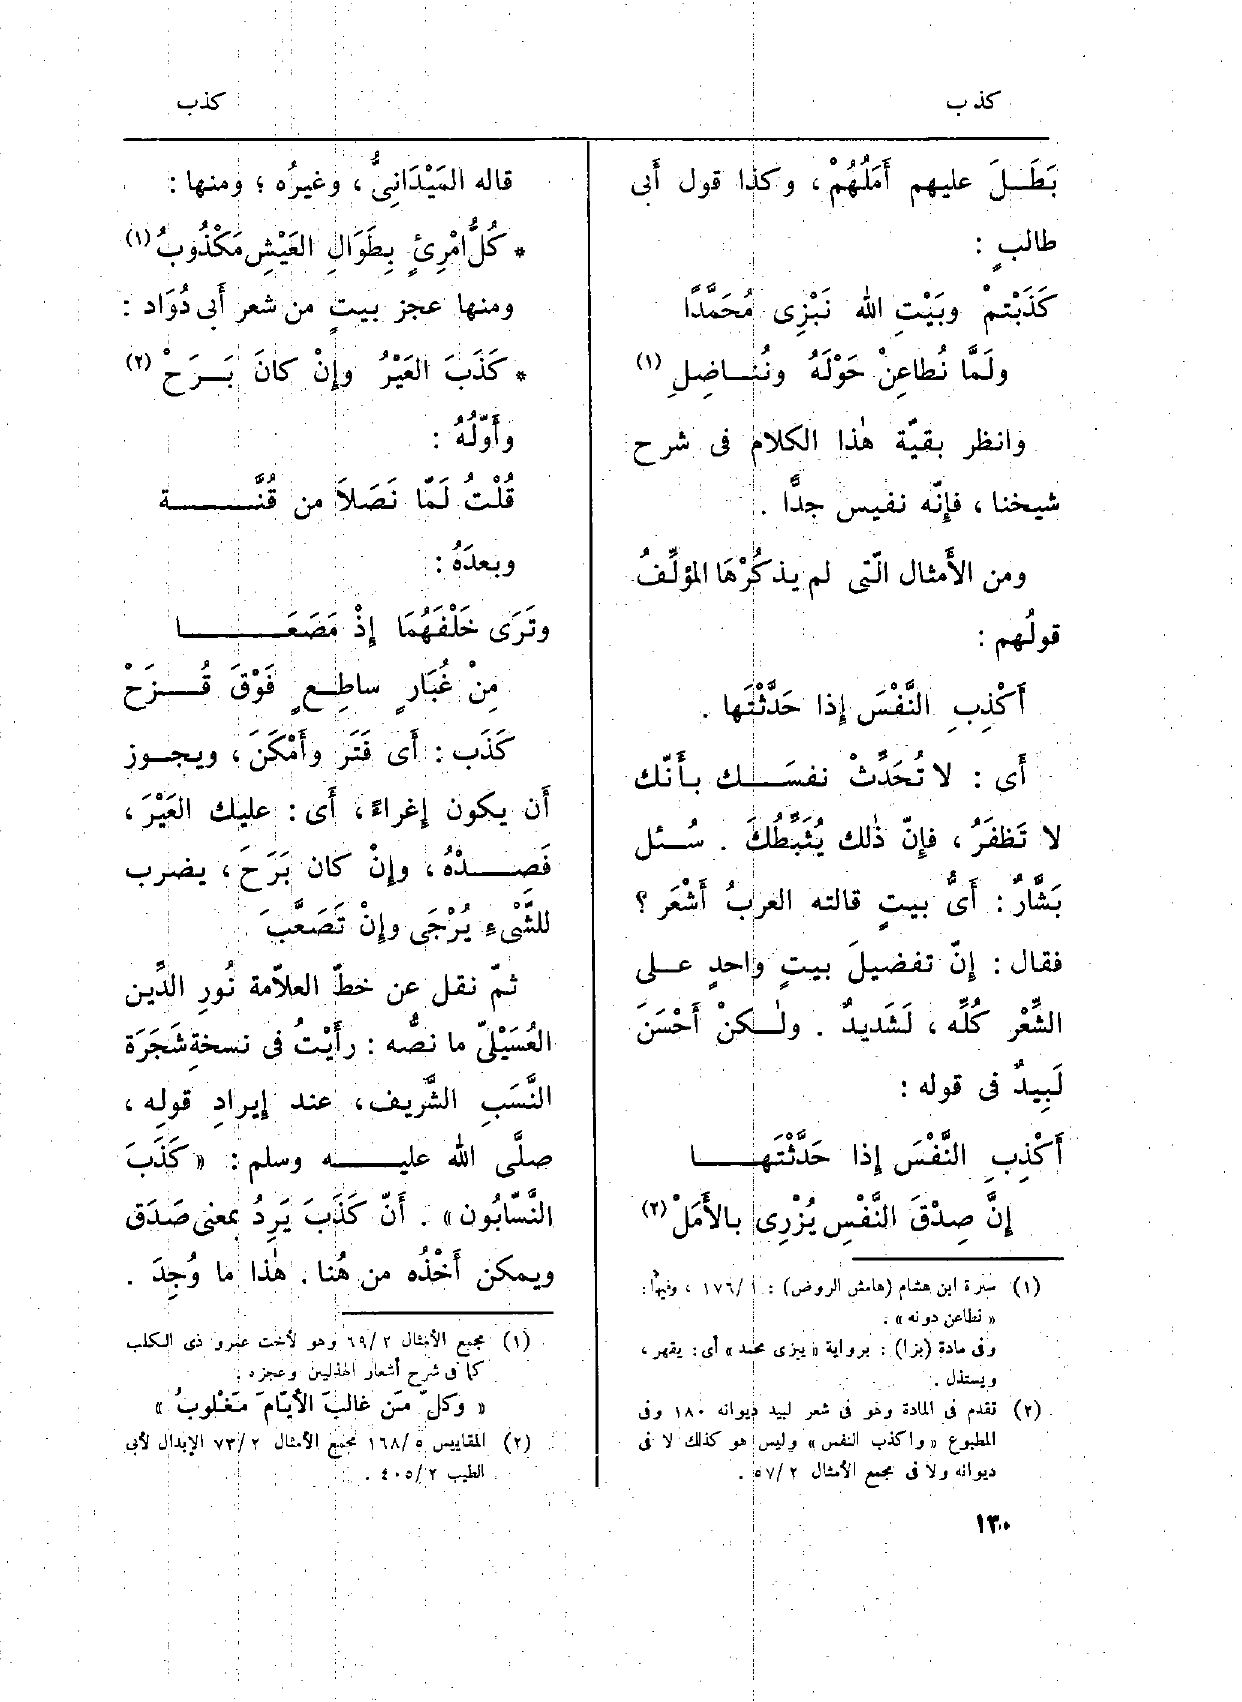 كذب
كذب
بَطَــلَ عليهم أَمَلُهُمْ، وكذا قول أَبى
طالبٍ :
كَذَبْتمْ وبَيْتِ الله نَبْزِى مُحَمَّدًا
ولَمَّا نُطاعِنْ حَوْلَهُ ونُنـاضِلِ (١)
وانظر بقيّة هٰذا الكلام فى شرح
شيخنا ، فإنّه نفيس جدًّا .
ومن الأَمثال الّتى لم يذكُرْهَا المؤلِّفُ
قولُهم :
أَكْذِبِ النَّفْسَ إذا حَدَّثْتَها .
أَى : لا تُحَدِّثْ نفسَــك بأَنّك
لا تَظفَرُ ، فإنّ ذٰلك يُثَبِّطُكَ . سُـئل
بَشَّارٌ : أَىُّ بيتٍ قالته العربُ أَشْعَر ؟
فقال : إنّ تفضيلَ بيتٍ واحدٍ علـى
الشِّعْر كُلِّه ، لَشَديدٌ . ولٰـكنْ أَحْسَنَ
لَبِيدٌ فى قوله :
أَكْذِبِ النَّفْسَ إذا حَدَّثْتَهــا
إنَّ صِدْقَ النَّفْسِ يُزْرِى بالأَمَلْ (٢)
(١) سيرة ابن هشام (هامش الروض) : ١/ ١٧٦ ، وفيها :
« نطاعن دونه » .
وفى مادة (بزا) : برواية « يبزى محمد » أى : يقهر ،
ويستذل .
(٢) تقدم فى المادة وهو فى شعر لبيد ديوانه ١٨٠ وفى
المطبوع « واكذب النفس » وليس هو كذلك لا فى
ديوانه ولا فى مجمع الأمثال ٢ /٥٧ .
قاله المَيْدَانِىُّ ، وغيرُه ؛ ومنها :
* كُلُّ امْرِئٍ بِطَوَالِ العَيْشِ مَكْذُوبُ (١)
ومنها عجز بيتٍ من شعر أَبى دُوَاد :
* كَذَبَ العَيْرُ وإنْ كانَ بَـرَحْ (٢)
وأَوّلُهُ :
قُلْتُ لَمّا نَصَلاَ من قُنَّــــة
وبعدَهُ :
وتَرَى خَلْفَهُمَا إذْ مَصَعَــــا
مِنْ غُبَارٍ ساطِعٍ فَوْقَ قُــزَحْ
كَذَب : أَى فَتَر وأَمْكَنَ ، ويجـوز
أَن يكون إغراءً ، أَى : عليك العَيْرَ ،
فَصِــدْهُ ، وإنْ كان بَرَحَ ، يضرب
للشَّىْءِ يُرْجَى وإنْ تَصَعَّبَ
ثمّ نقل عن خطّ العلاّمة نُورِ الدِّين
العُسَيْلىّ ما نصُّه : رأَيْتُ فى نسخةِ شَجَرَة
النَّسَبِ الشَّريف، عند إيرادِ قولِه ،
صلَّى الله عليــه وسلم : « كَذَبَ
النَّسّابُون » . أَنّ كَذَبَ يَرِدُ بمعنى صَدَق
ويمكن أَخْذُه من هُنا . هٰذا ما وُجِدَ .
(١) مجمع الأمثال ٢ /٦٩ وهو لأخت عمرو ذى الكلب
كما فى شرح أشعار الهذليين وعجزه :
« وكلّ مَن غالبَ الأيّامَ مَغْلوبُ »
(٢) المقاييس ٥ /١٦٨ مجمع الأمثال ٢ /٧٣ الإبدال لأبى
الطيب ٢ /٤٠٥ .
١٣٠